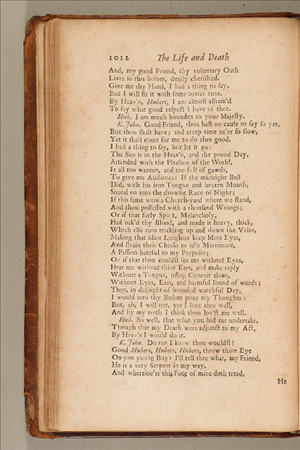 1012 The Life and Death
And, my good Friend, thy voluntary Oath
Lives in this bosom, dearly cherished.
Give me thy Hand, I had a thing to say,
But I will fit it with some better tune.
By Heav'n, Hubert, I am almost asham'd
To say what good respect I have of thee.
Hub. I am much bounden to your Majesty.
K. John. Good Friend, thou hast no cause to say so yet,
But thou shalt have; and creep time ne'er so slow,
Yet it shall come for me to do thee good.
I had a thing to say, but let it go:
The Sun is in the Heav'n, and the proud Day,
Attended with the Pleasure of the World,
Is all too wanton, and too full of gawds,
To give me Audience: If the midnight Bell
Did, with his iron Tongue and brazen Mouth,
Sound on into the drowsie Race of Night;
If this same were a Church-yard where we stand,
And thou possessed with a thousand Wrongs;
Or if that surly Spirit, Melancholy,
Had bak'd thy Blood, and made it heavy, thick,
Which else runs trickling up and down the Veins,
Making that idiot Laughter keep Mens Eyes,
And strain their Cheeks to idle Merriment,
A Passion hateful to my Purposes;
Or if that thou couldst see me without Eyes,
Hear me without thine Ears, and make reply
Without a Tongue, using Conceit alone,
Without Eyes, Ears, and harmful sound of words;
Then, in despight of brooded watchful Day,
I would into thy Bosom pour my Thoughts:
But, ah, I will not, yet I love thee well,
And by my troth I think thou lov'st me well.
Hub. So well, that what you bid me undertake,
Though that my Death were adjunct to my Act,
By Heav'n I would do it.
K. John. Do not I know thou wouldst?
Good Hubert, Hubert, Hubert, throw thine Eye
On yon young Boy: I'll tell thee what, my Friend,
He is a very Serpent in my way,
And wheresoe'er this Foot of mine doth tread,
He